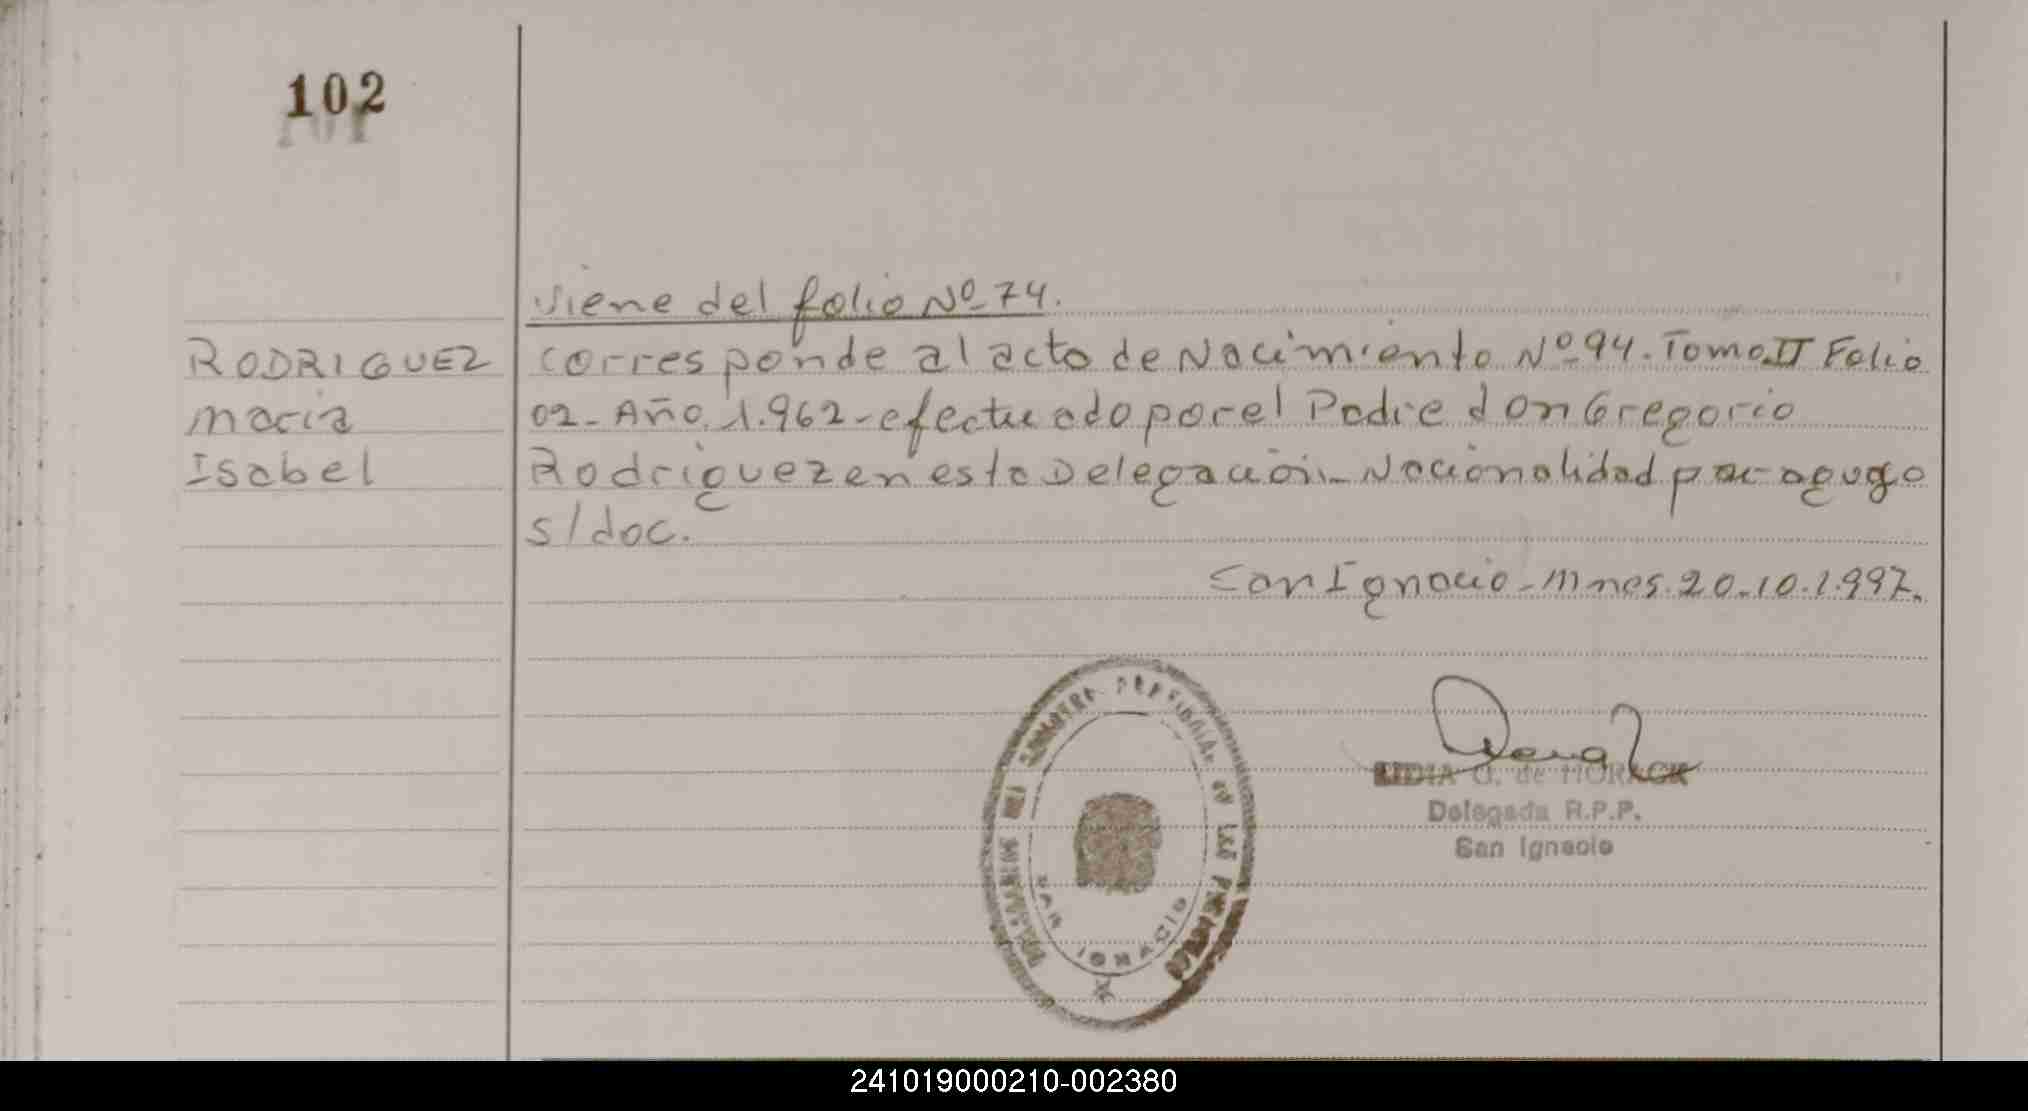 102
Viene del folio Nº 74.
RODRIGUEZ
Maria
Isabel
Corresponde al acta de Nacimiento Nº 94. Tomo II Folio
02- Año 1.962- efectuado por el Padre don Gregorio
Rodriguez en esta Delegación- Nacionalidad paraguaya
s/doc.
San Ignacio - Mnes. 20-10-1.997.
LIDIA G. de HORACK
Delegada R.P.P.
San Ignacio
DE LAS PERSONAS
SAN IGNACIO
241019000210-002380